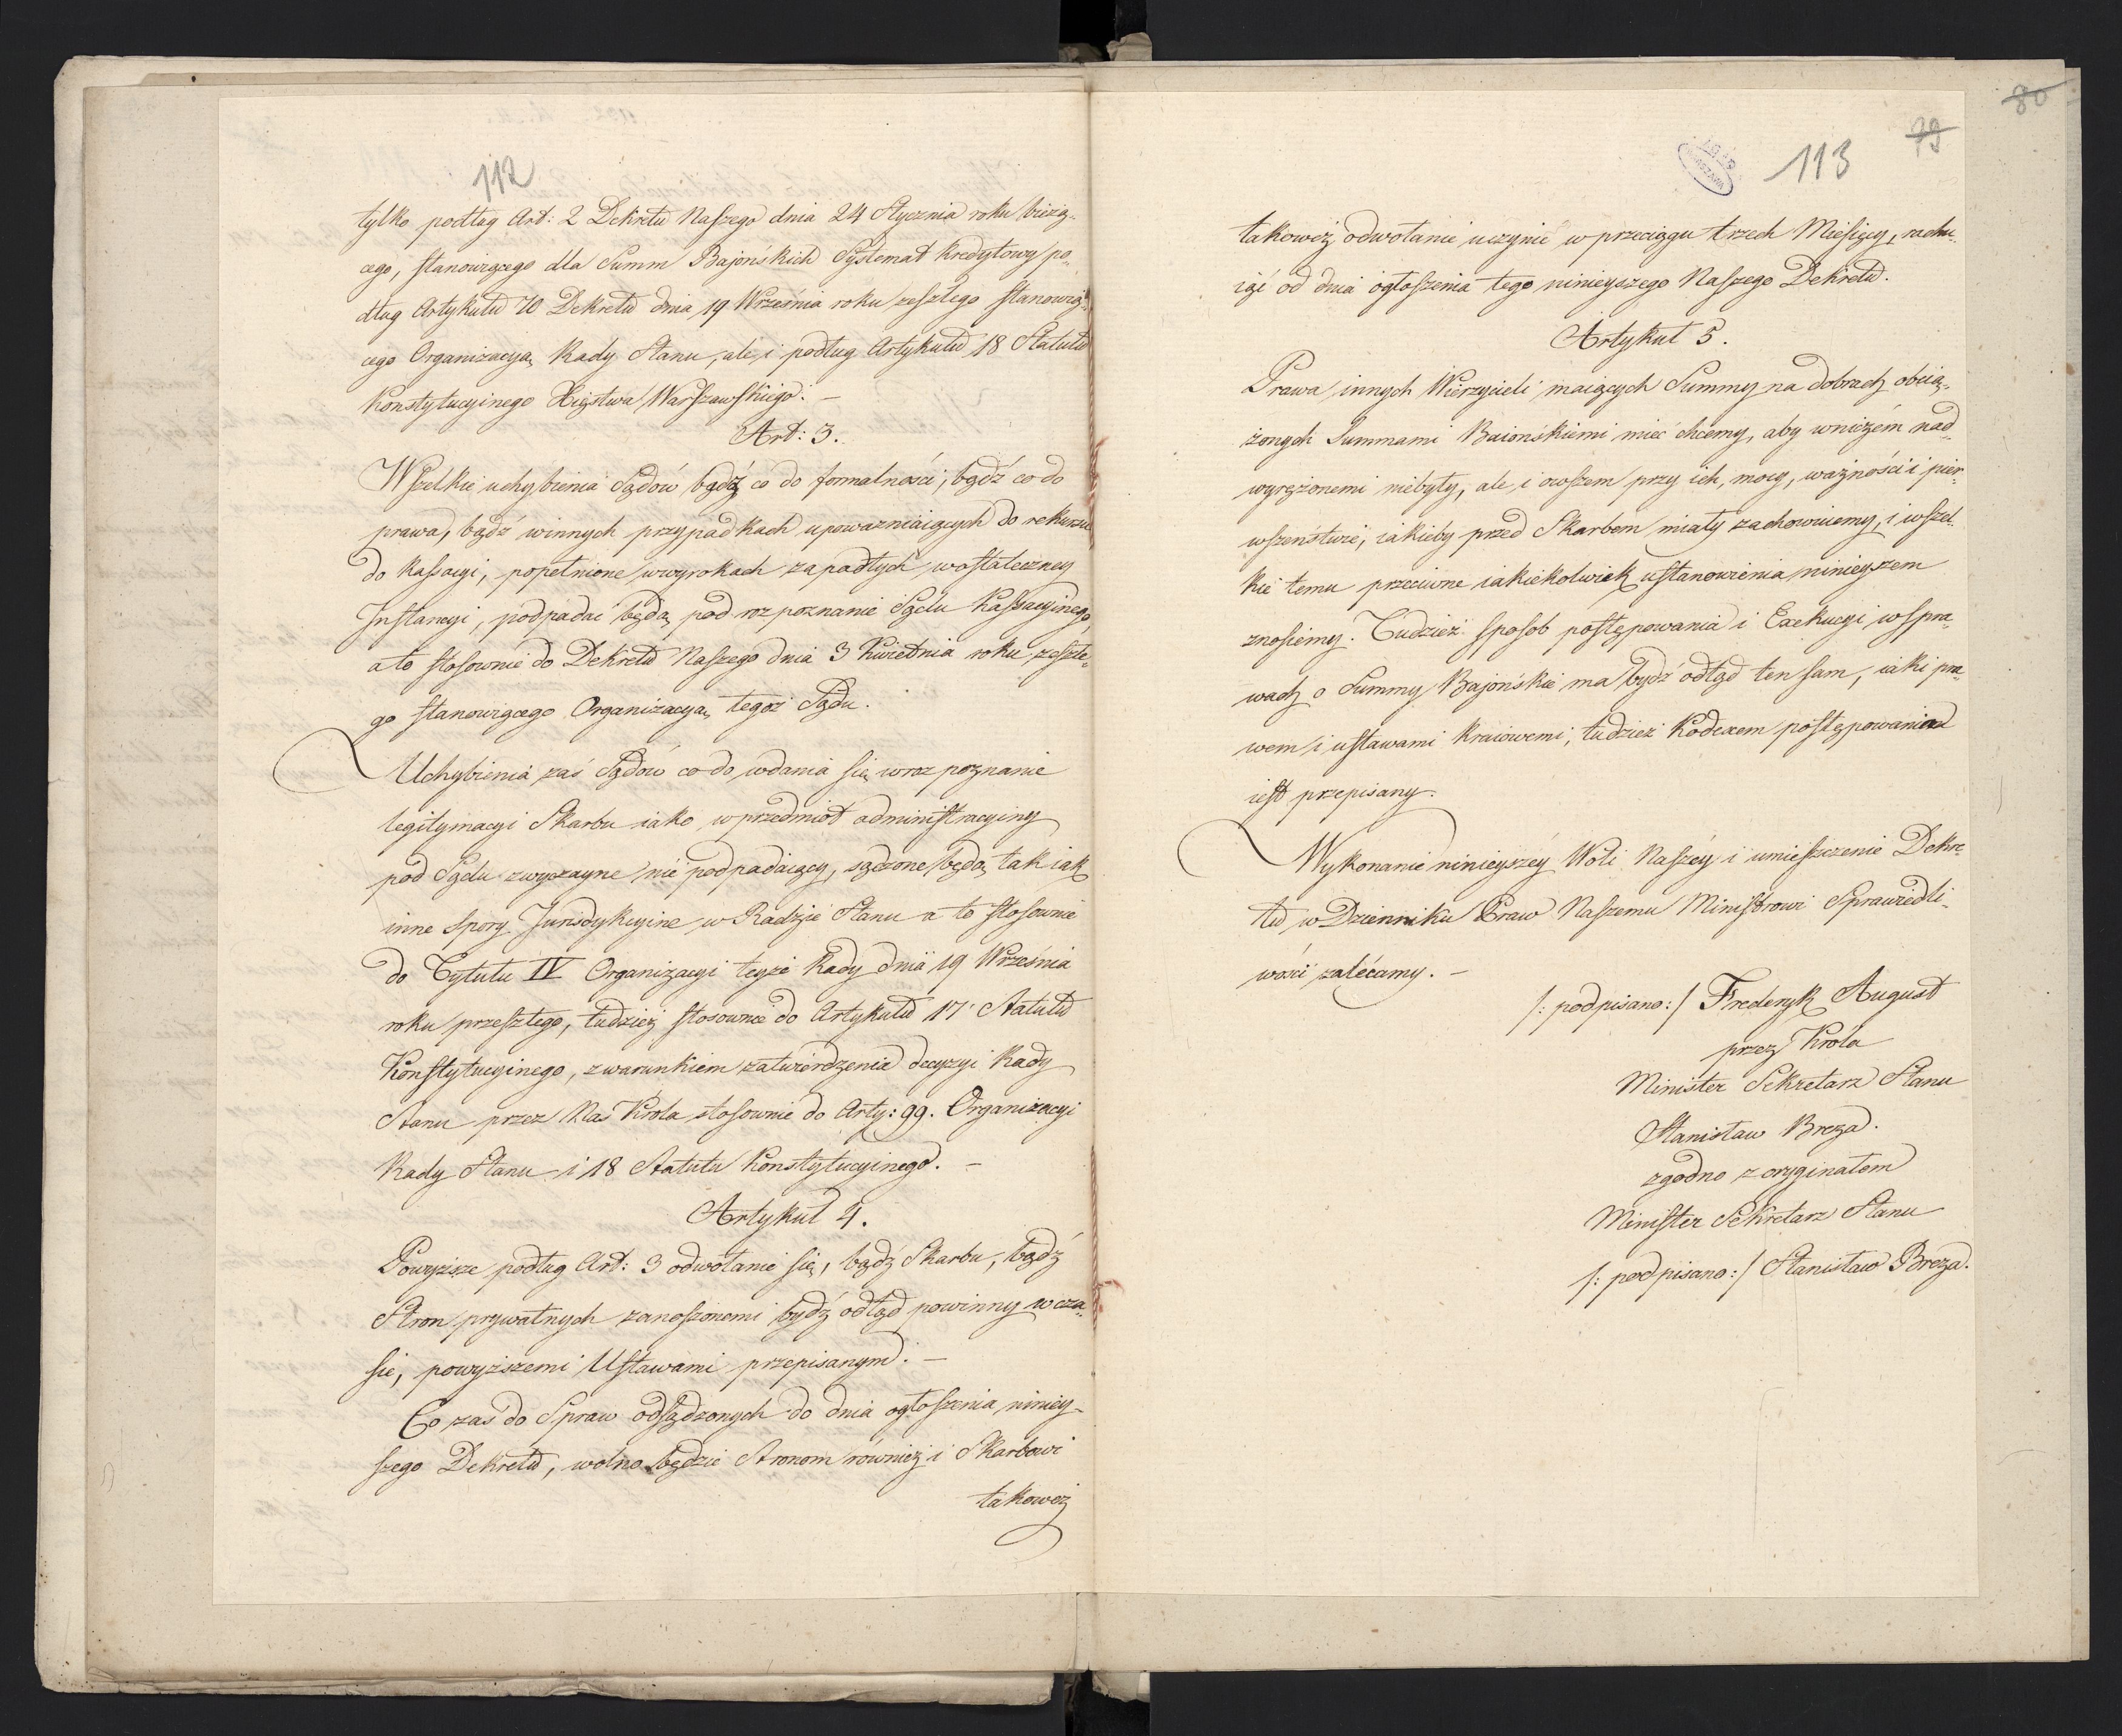 112
tylko podług Art: 2 Dekretu Naszego dnia 24 Stycznia roku bieżą-
cego, stanowiącego dla Summ Bajońskich Systemat kredytowy po-
dług Artykułu 70 Dekretu dnia 19 Września roku zeszłego stanowią-
cego Organizacyą Rady Stanu, ale i podług Artykułu 18 Statutu
Konstytucyinego Xięstwa Warszawskiego. –
Art: 3.
Wszelkie uchybienia Sądów bądź co do formalności, bądź co do
prawa, bądź winnych przypadkach upoważniaiących do rekursu
do Kassacyi, popełnione w wyrokach zapadłych w ostateczney
Instancyi, podpadać będą pod rozpoznanie Sądu Kassacyinego,
a to stosownie do Dekretu Naszego dnia 3 Kwietnia roku zeszłe-
go stanowiącego Organizacyą tegoż Sądu.
Uchybienia zaś Sądów co do wdania się w rozpoznanie
legitymacyi Skarbu iako w przedmiot administracyiny
pod Sądu zwyczayne nie podpadaiący, sądzone będą tak iak
inne spory Jurisdykcyine w Radzie Stanu a to stosownie
do Tytułu IV Organizacyi teyże Rady dnia 19 Września
roku przeszłego, tudzież stosownie do Artykułu 17 Statutu
Konstytucyinego, z warunkiem zatwierdzenia decyzyi Rady
Stanu przez Nas Króla stosownie do Arty: 99. Organizacyi
Rady Stanu i 18 Statutu Konstytucyinego. –
Artykuł 4.
Powyższe podług Art: 3 odwołanie się, bądź Skarbu, bądź
Stron prywatnych zanoszonemi bydź odtąd powinny w cza-
sie, powyższemi Ustawami przepisanym. –
Co zaś do Spraw odsądzonych do dnia ogłoszenia niniey-
szego Dekretu, wolno będzie Stronom również i Skarbowi
takoweż
80
79
113
takoweż odwołanie uczynić w przeciągu trzech Miesięcy, rachu-
iąc od dnia ogłoszenia tego ninieyszego Naszego Dekretu.
Artykuł 5.
Prawa innych Wierzycieli maiących Summy na dobrach obcią-
żonych Summami Baiońskiemi mieć chcemy, aby wniczém nad
wyrężonemi niebyły, ale i owszem przy ich, mocy, ważności i pier-
wszeństwie, iakieby przed Skarbem miały zachowuiemy, i wszel-
kie temu przeciwne iakiekolwiek ustanowienia ninieyszem
znosiemy. Tudzież sposob postępowania i Exekucyi w spra-
wach o Summy Bajońskie ma bydź odtąd ten sam, iaki pra-
wem i ustawami kraiowemi, tudzież Kodexem postępowania
iest przepisany.
Wykonanie ninieyszéy Woli Naszéy i umieszczenie Dekre-
tu w Dzienniku Praw Naszemu Ministrowi Sprawiedli-
wości zalécamy. –
/: podpisano :/ Frederyk August
przez Króla
Minister Sekretarz Stanu
Stanisław Breza.
zgodno z oryginałem
Minister Sekretarz Stanu
/: podpisano :/ Stanisław Breza.